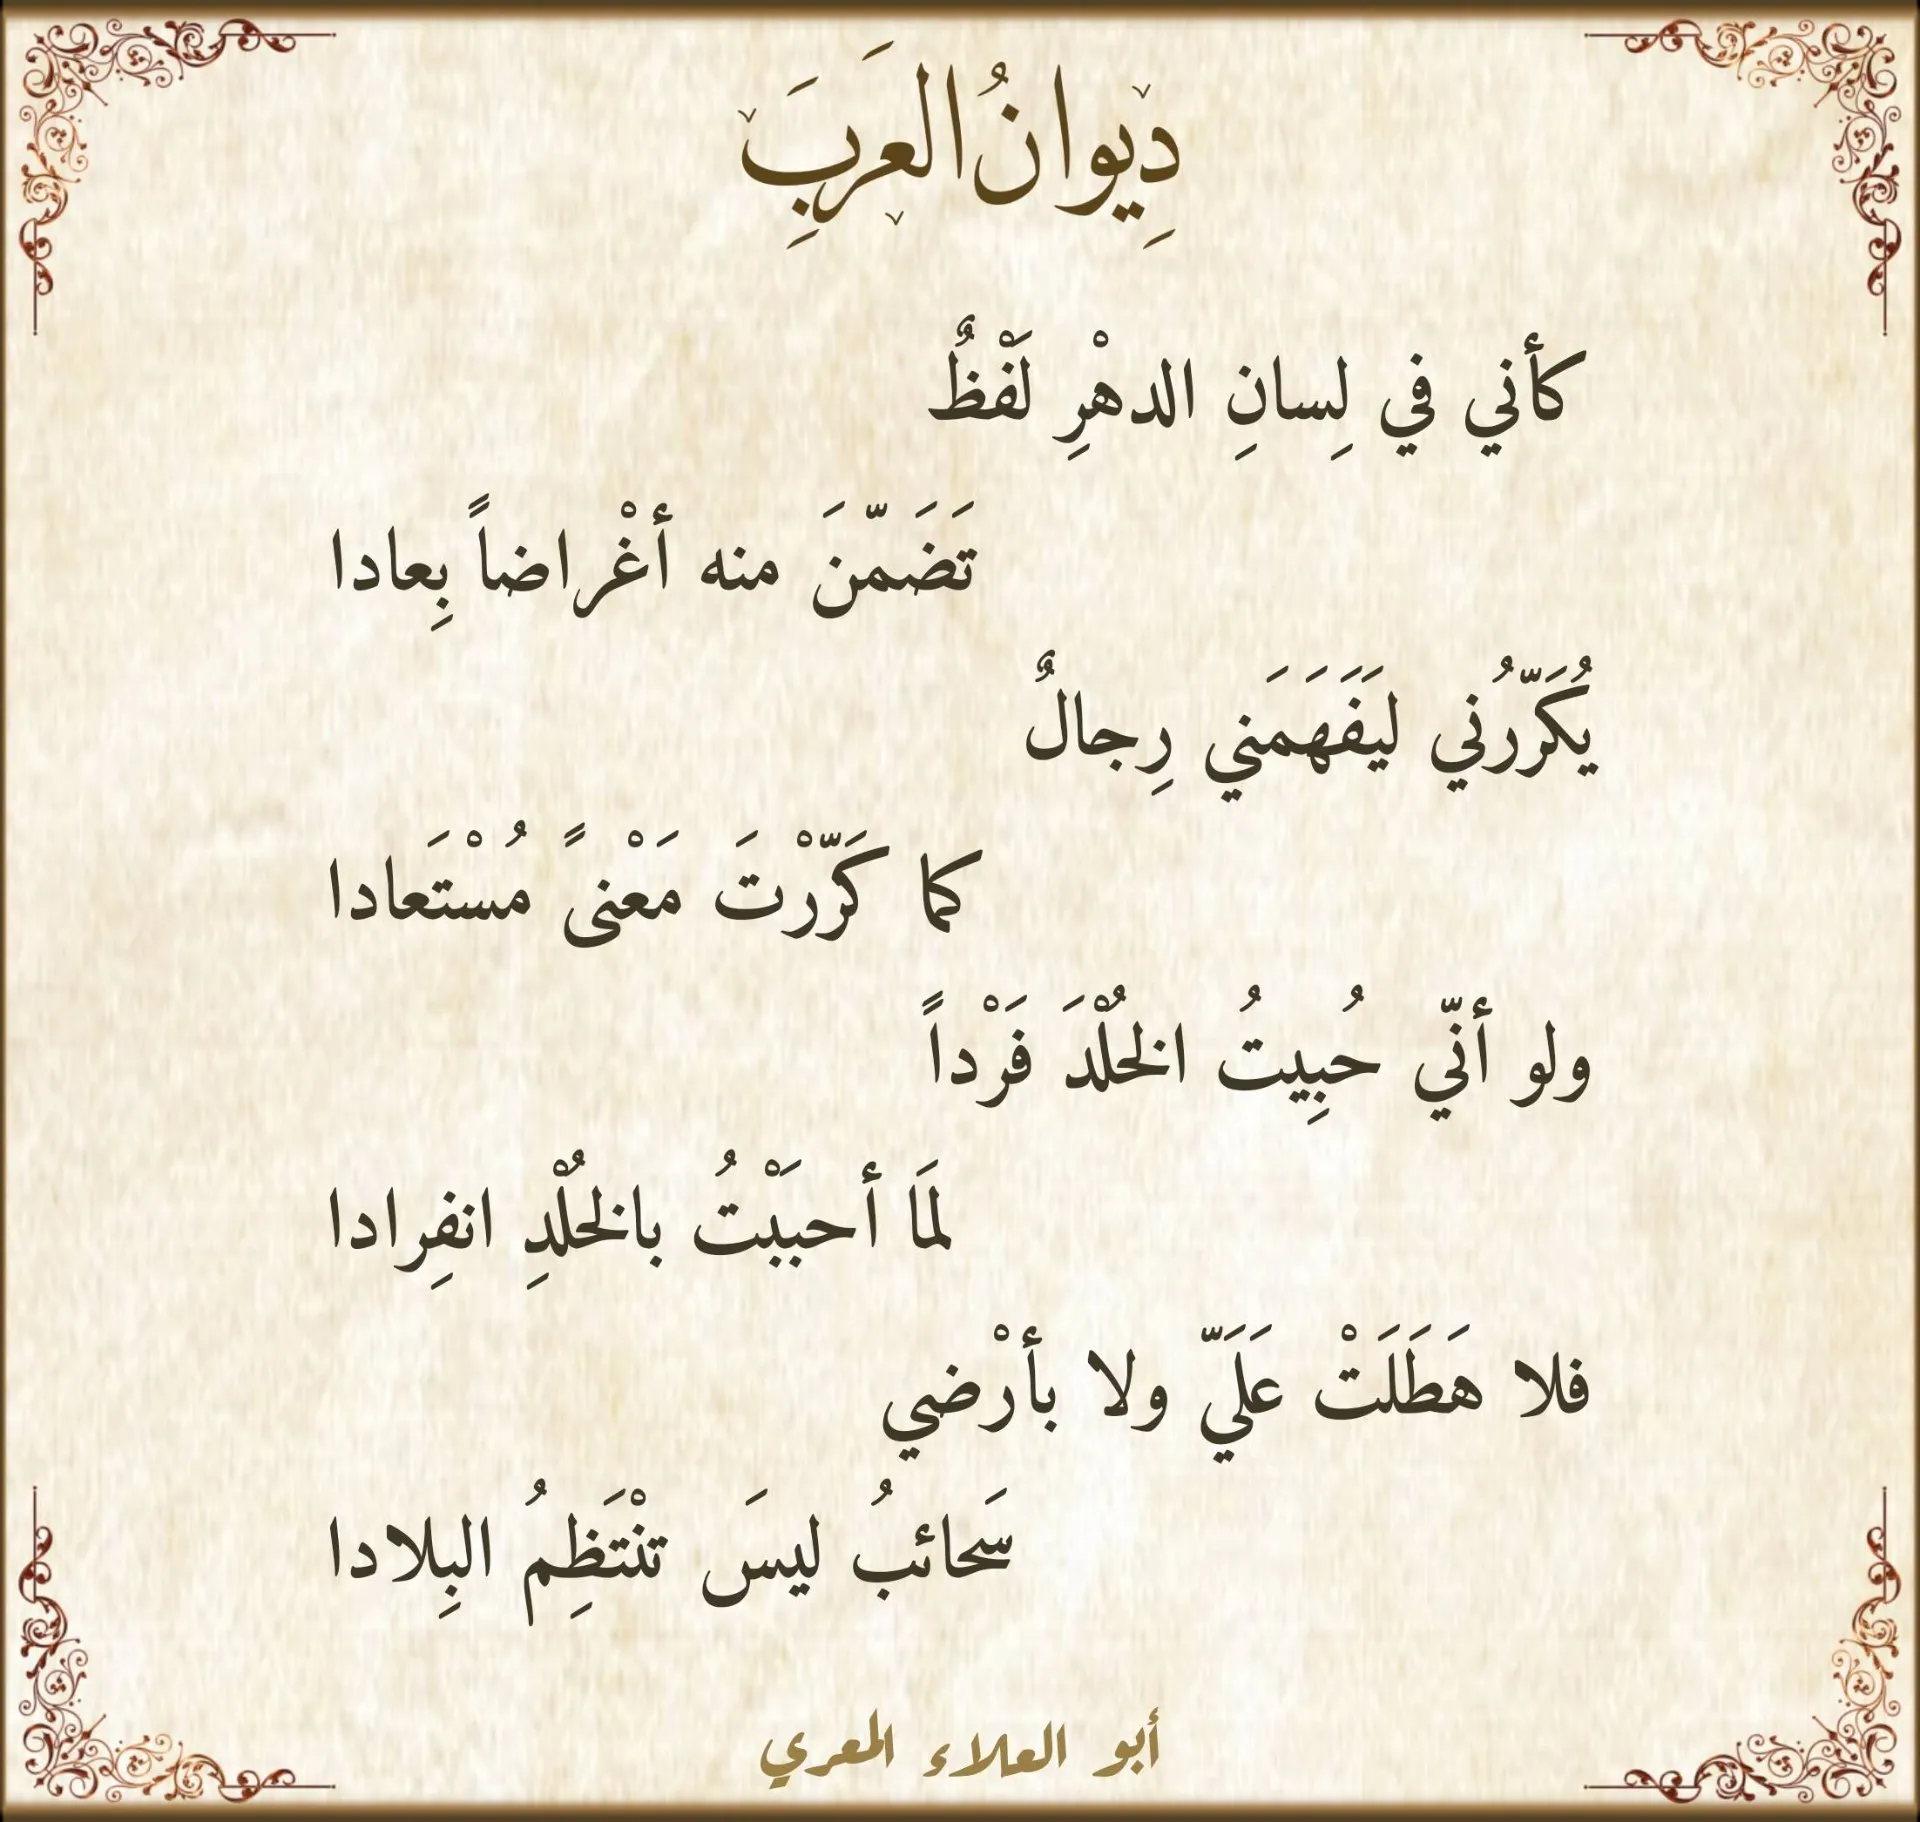 دِيوانُ العَرَبِ
كأني في لِسانِ الدهْرِ لَفْظٌ
تَضَمّنَ منه أغْراضاً بِعادا
يُكَرّرُني ليَفَهَمَني رِجالٌ
كما كَرّرْتَ مَعْنىً مُسْتَعادا
ولو أنّي حُبِيتُ الخُلْدَ فَرْداً
لمَا أحبَبْتُ بالخُلْدِ انفِرادا
فلا هَطَلَتْ عَلَيّ ولا بأرْضي
سَحائبُ ليسَ تنْتَظِمُ البِلادا
أبو العلاء المعري